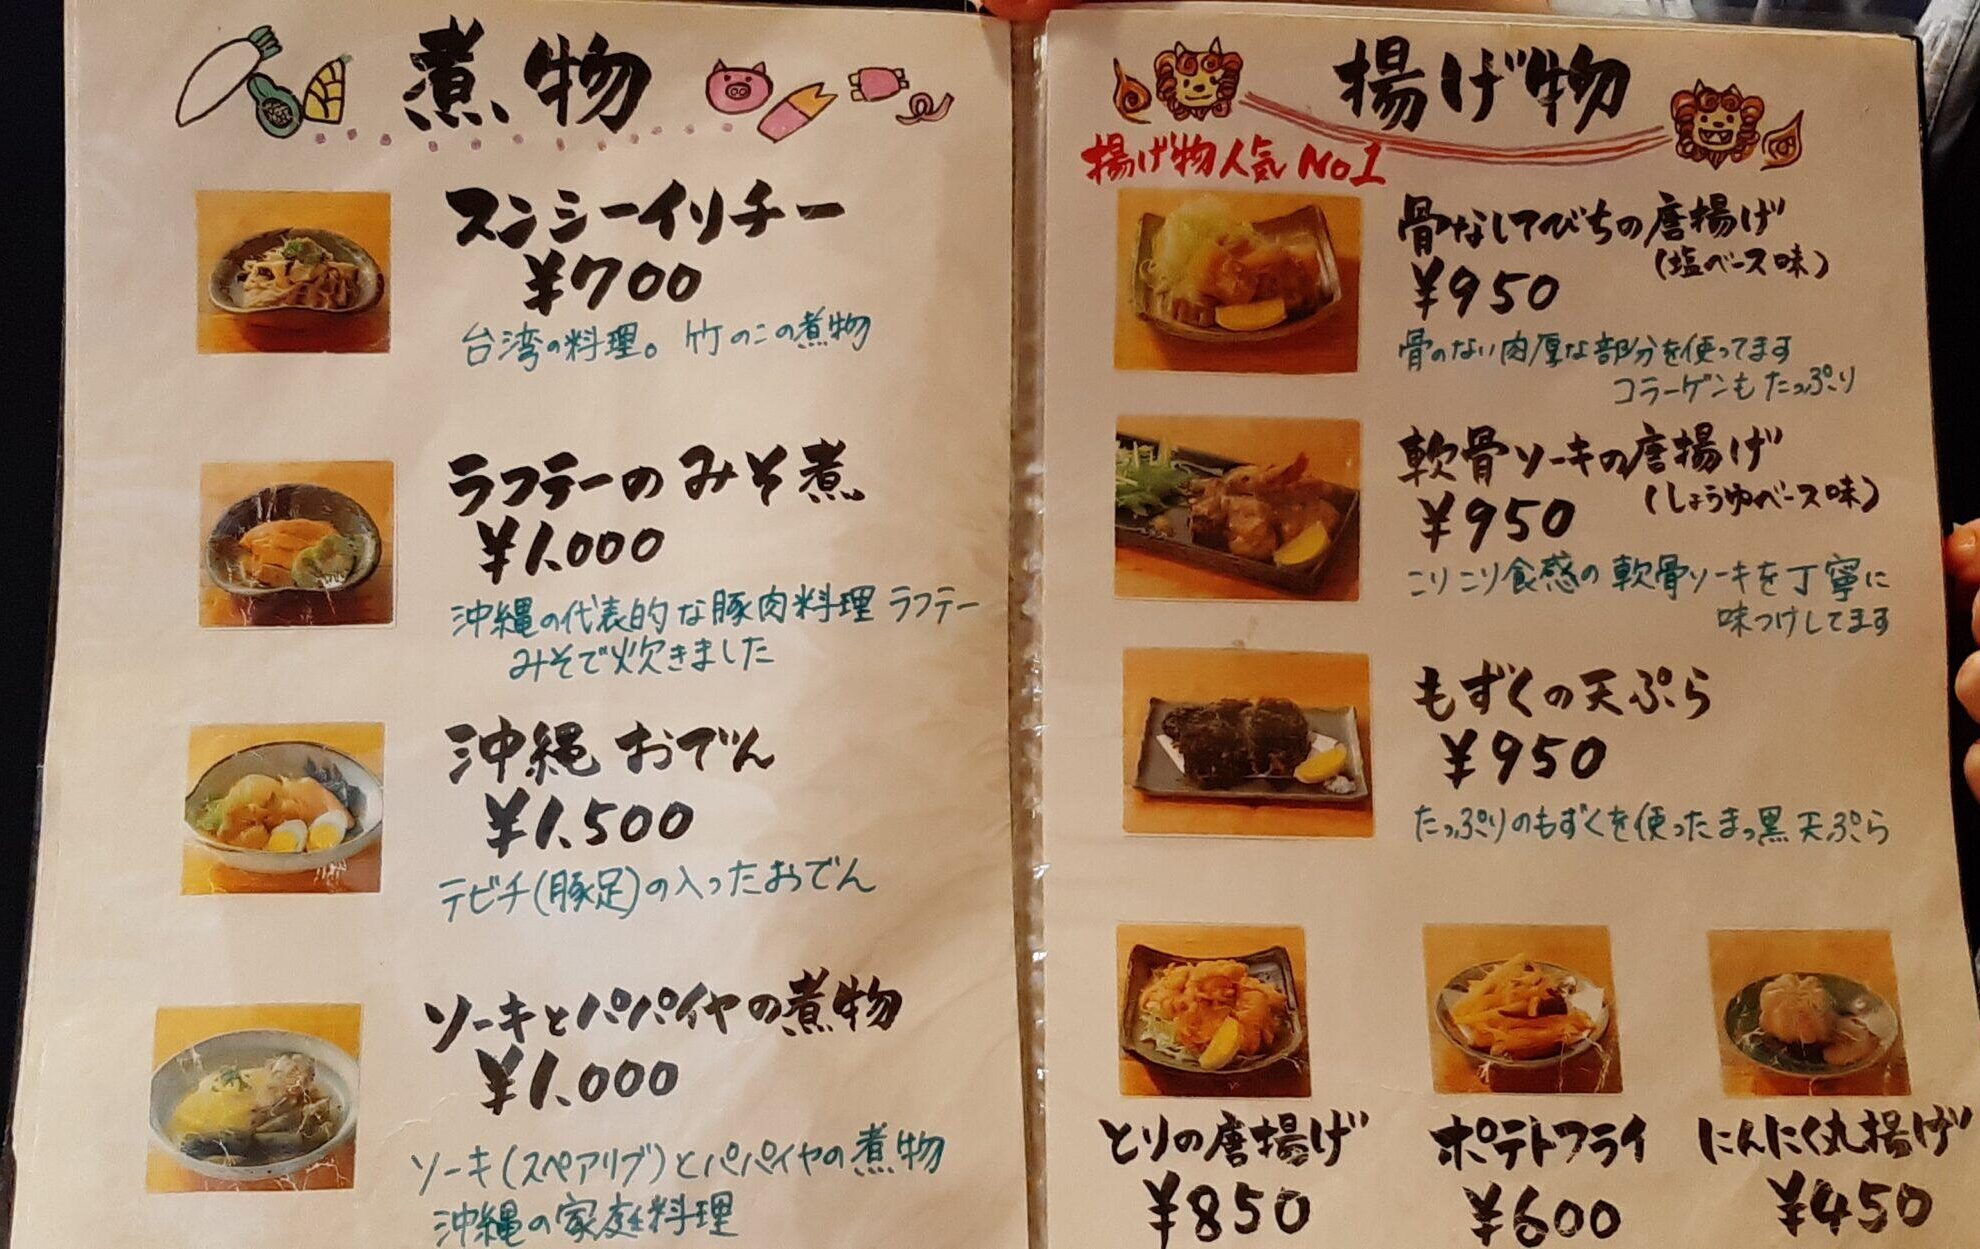 煮物
スンシーイリチー
¥700
台湾の料理。竹のこの煮物
ラフテーのみそ煮
¥1.000
沖縄の代表的な豚肉料理 ラフテー
みそで炊きました
沖縄おでん
¥1.500
テビチ(豚足)の入ったおでん
ソーキとパパイヤの煮物
¥1.000
ソーキ(スペアリブ)とパパイヤの煮物
沖縄の家庭料理
揚げ物
揚げ物人気No1
骨なしてびちの唐揚げ
(塩ベース味)
¥950
骨のない肉厚な部分を使ってます
コラーゲンもたっぷり
軟骨ソーキの唐揚げ
(しょうゆベース味)
¥950
こりこり食感の軟骨ソーキを丁寧に
味つけしてます
もずくの天ぷら
¥950
たっぷりのもずくを使ったまっ黒天ぷら
とりの唐揚げ
¥850
ポテトフライ
¥600
にんにく丸揚げ
¥450